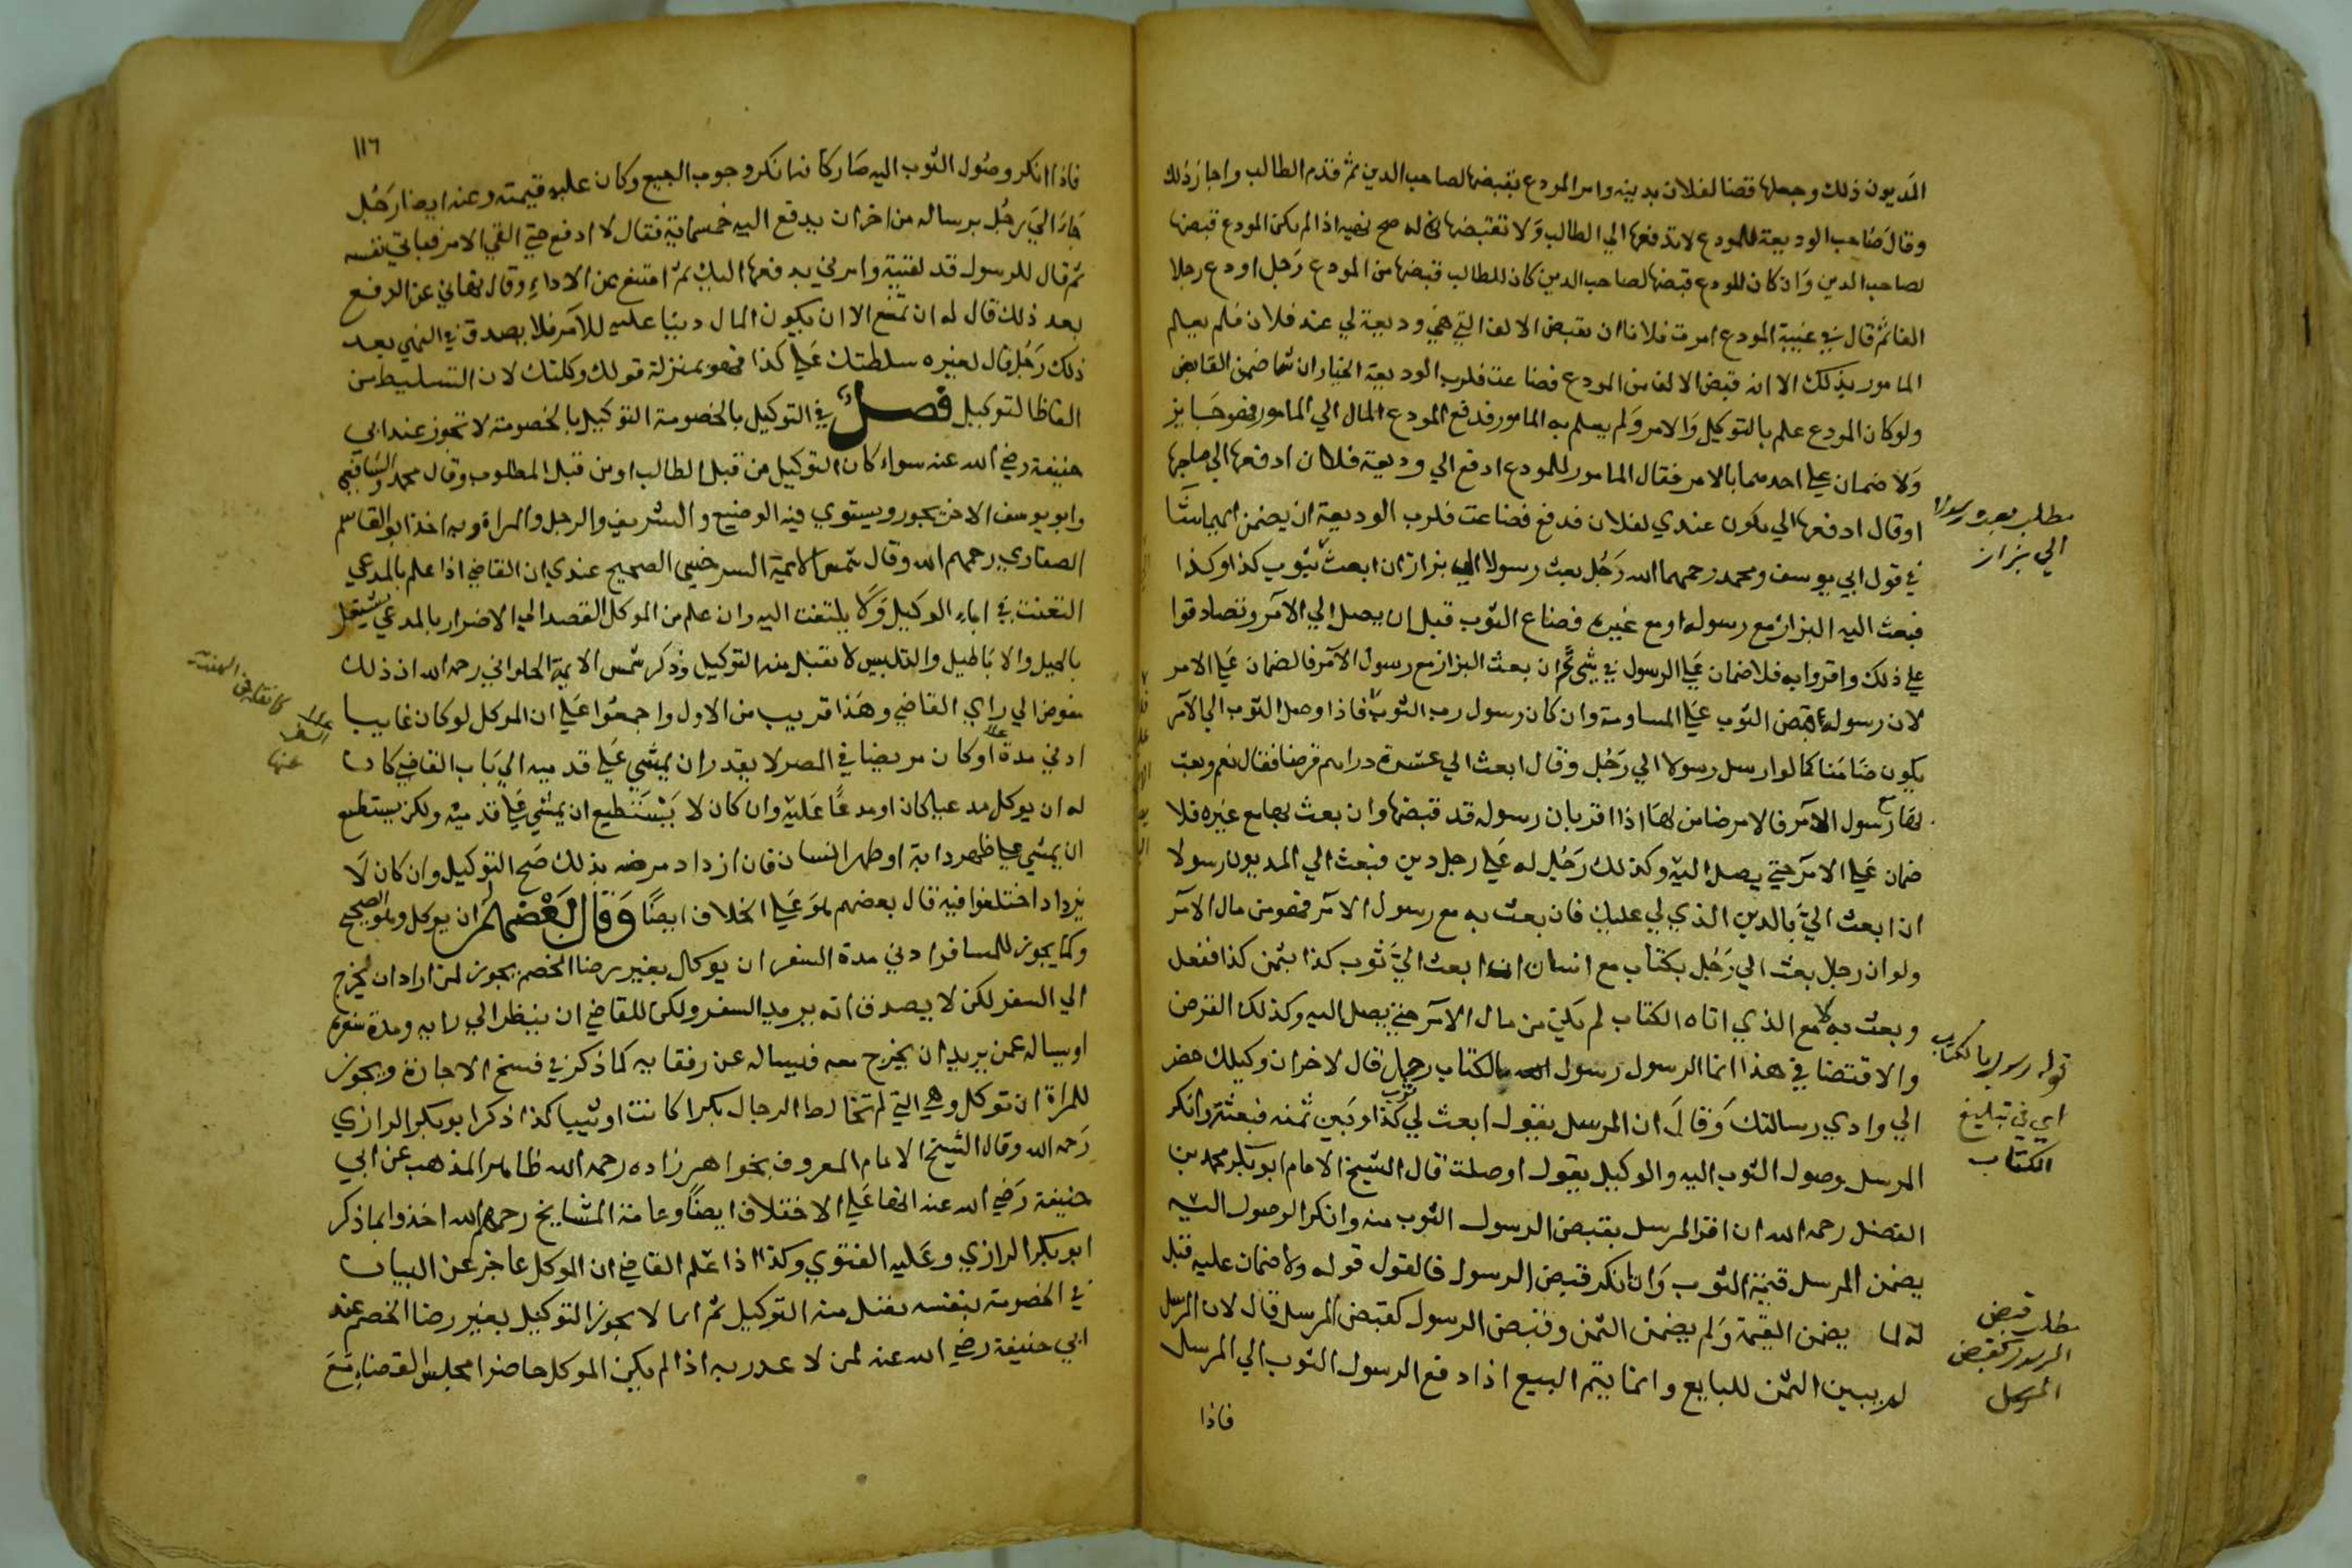 المديون ذلك وجعلها قضا لفلان بدينه وامر المودع بقبضها لصاحب الدين ثم قدم الطالب واجاز ذلك
وقال صاحب الوديعة للمودع لا تدفعها الي الطالب ولا تقبضها له صح نهيه اذا لم يكن المودع قبضها
لصاحب الدين وان كان المودع قبضها لصاحب الدين كان للطالب قبضها من المودع رجل اودع رجلا
الفا ثم قال في غيبة المودع امرت فلانا ان يقبض الالف التي هي وديعة لي عند فلان فلم يعلم
المامور بذلك الا انه قبض الالف من المودع فضاعت فلرب الوديعة الخيار ان شا ضمن القابض
ولو كان المودع علم بالتوكيل والامر ولم يعلم به المامور فدفع المودع المال الي المامور فهو جايز
ولا ضمان علي احدهما بالامر فقال المامور للمودع ادفع الي وديعة فلان ادفعها الي صاحبها
او قال ادفعها الي يكون عندي لفلان فدفع فضاعت فلرب الوديعة ان يضمن ايهما شا
في قول ابي يوسف ومحمد رحمهما الله رجل بعث رسولا الي بزاز ان ابعث بثوب كذا وكذا
فبعث اليه البزاز مع رسوله او مع غيره فضاع الثوب قبل ان يصل الي الآمر وتصادقوا
علي ذلك واقروا به فلا ضمان علي الرسول في شي ثم ان بعث البزاز مع رسول الآمر فالضمان علي الامر
لان رسوله قبض الثوب علي المساومة وان كان رسول رب الثوب فاذا وصل الثوب الي الآمر
يكون ضامنا كما لو ارسل رسولا الي رجل وقال ابعث الي عشرة دراهم قرضا فقال نعم وبعث
بها مع رسول الآمر فالامر ضامن لها اذا اقر بان رسوله قد قبضها وان بعث بها مع غيره فلا
ضمان علي الامر حتي يصل اليه وكذلك رجل له علي رجل دين فبعث الي المديون رسولا
ان ابعث الي بالدين الذي لي عليك فان بعث به مع رسول الآمر فهو من مال الآمر
ولو ان رجلا بعث الي رجل بكتاب مع انسان ان ابعث الي ثوب كذا بثمن كذا ففعل
وبعث به مع الذي اتاه الكتاب لم يكن من مال الآمر حتي يصل اليه وكذلك القرض
والاقتضا في هذا انما الرسول رسول بالكتاب رجل قال لاخر ان وكيلك حضر
الي وادي رسالتك وقال ان المرسل يقول ابعث لي ثوب كذا وبين ثمنه فبعثته وانكر
المرسل وصول الثوب اليه والوكيل يقول اوصلت قال الشيخ الامام ابو بكر محمد بن
الفضل رحمه الله ان اقر المرسل بقبض الرسول الثوب منه وانكر الوصول اليه
يضمن المرسل قيمة الثوب وان انكر قبض الرسول فالقول قوله ولا ضمان عليه قيل
له لما يضمن القيمة ولم يضمن الثمن وقبض الرسول كقبض المرسل قال لان المرسل
لم يبين الثمن للبايع وانما يتم البيع اذا دفع الرسول الثوب الي المرسل
فاذا
مطلب بعث رسولا
الي بزاز
قوله رسول بالكتاب
اي في تبليغ
الكتاب
مطلب قبض
الرسول كقبض
المرسل
١١٦
فاذا انكر وصول الثوب اليه صار كانه انكر وجوب البيع وكان عليه قيمته وعنه ايضا رجل
جاء الي رجل برسالة من اخر ان يدفع اليه خمسماية فقال لا ادفع حتي القي الامر فياتي بنفسه
ثم قال للرسول قد لقيته وامرني بدفعها اليك ثم امتنع عن الاداء وقال نهاني عن الدفع
بعد ذلك قال له ان يمتنع الا ان يكون المال دينا عليه للآمر فلا يصدق في النهي بعد
ذلك رجل قال لغيره سلطتك علي كذا فهو بمنزلة قوله وكلتك لان التسليط من
الفاظ التوكيل فصل في التوكيل بالخصومة التوكيل بالخصومة لا تجوز عند ابي
حنيفة رضي الله عنه سواء كان التوكيل من قبل الطالب او من قبل المطلوب وقال محمد والشافعي
وابو يوسف الاخر يجوز ويستوي فيه الوضيع والشريف والرجل والمراة وبه اخذ ابو القاسم
الصفار رحمهم الله وقال شمس الايمة السرخسي الصحيح عندي ان القاضي اذا علم بالمدعي
التعنت في اباء الوكيل ولا يلتفت اليه وان علم من الموكل القصد الي الاضرار بالمدعي
بالحيل والاباطيل والتلبيس لا يقبل منه التوكيل وذكر شمس الايمة الحلواني رحمه الله ان ذلك
مفوض الي راي القاضي وهذا قريب من الاول واجمعوا علي ان الموكل لو كان غايبا
ادني مدة او كان مريضا في المصر لا يقدر ان يمشي علي قدميه الي باب القاضي كان
له ان يوكل مدعيا كان او مدعا عليه وان كان لا يستطيع ان يمشي علي قدميه ولكن يستطيع
ان يمشي علي ظهر دابة او ظهر انسان فان ازداد مرضه بذلك صح التوكيل وان كان لا
يزداد اختلفوا فيه قال بعضهم هو علي الخلاف ايضا وقال بعضهم له ان يوكل وهو الصحيح
وكما يجوز للمسافر ادني مدة السفر ان يوكل بغير رضا الخصم يجوز لمن اراد ان يخرج
الي السفر لكن لا يصدق انه يريد السفر ولكن للقاضي ان ينظر الي زيه وعدة سفره
او يساله عمن يريد ان يخرج معه فيساله عن رفقايه كما ذكر في فسخ الاجازة ويجوز
للمراة ان توكل وهي التي لم تخالط الرجال بكرا كانت او ثيبا كذا ذكر ابو بكر الرازي
رحمه الله وقال الشيخ الامام المعروف بخواهر زاده رحمه الله ظاهر المذهب عن ابي
حنيفة رضي الله عنه انها علي الاختلاف ايضا وعامة المشايخ رحمهم الله اخذوا بما ذكر
ابو بكر الرازي وعليه الفتوي وكذا اذا علم القاضي ان الموكل عاجز عن البيان
في الخصومة بنفسه يقبل منه التوكيل ثم انما لا يجوز التوكيل بغير رضا الخصم عند
ابي حنيفة رضي الله عنه لمن لا عذر به اذا لم يكن الموكل حاضرا مجلس القضاء مع